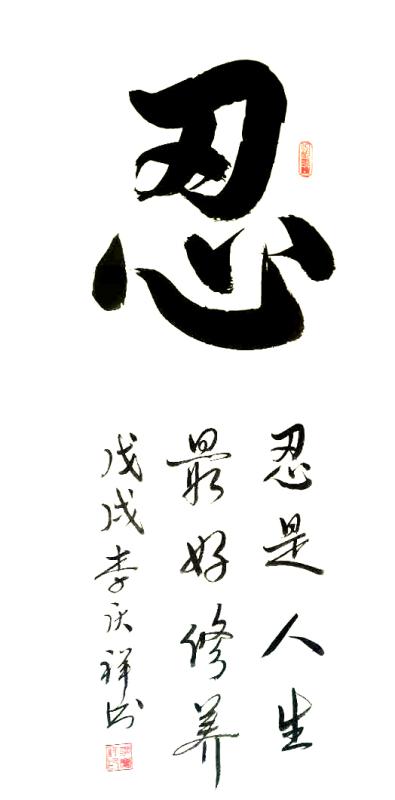 忍
忍是人生
最好修养
戊戌李庆祥书